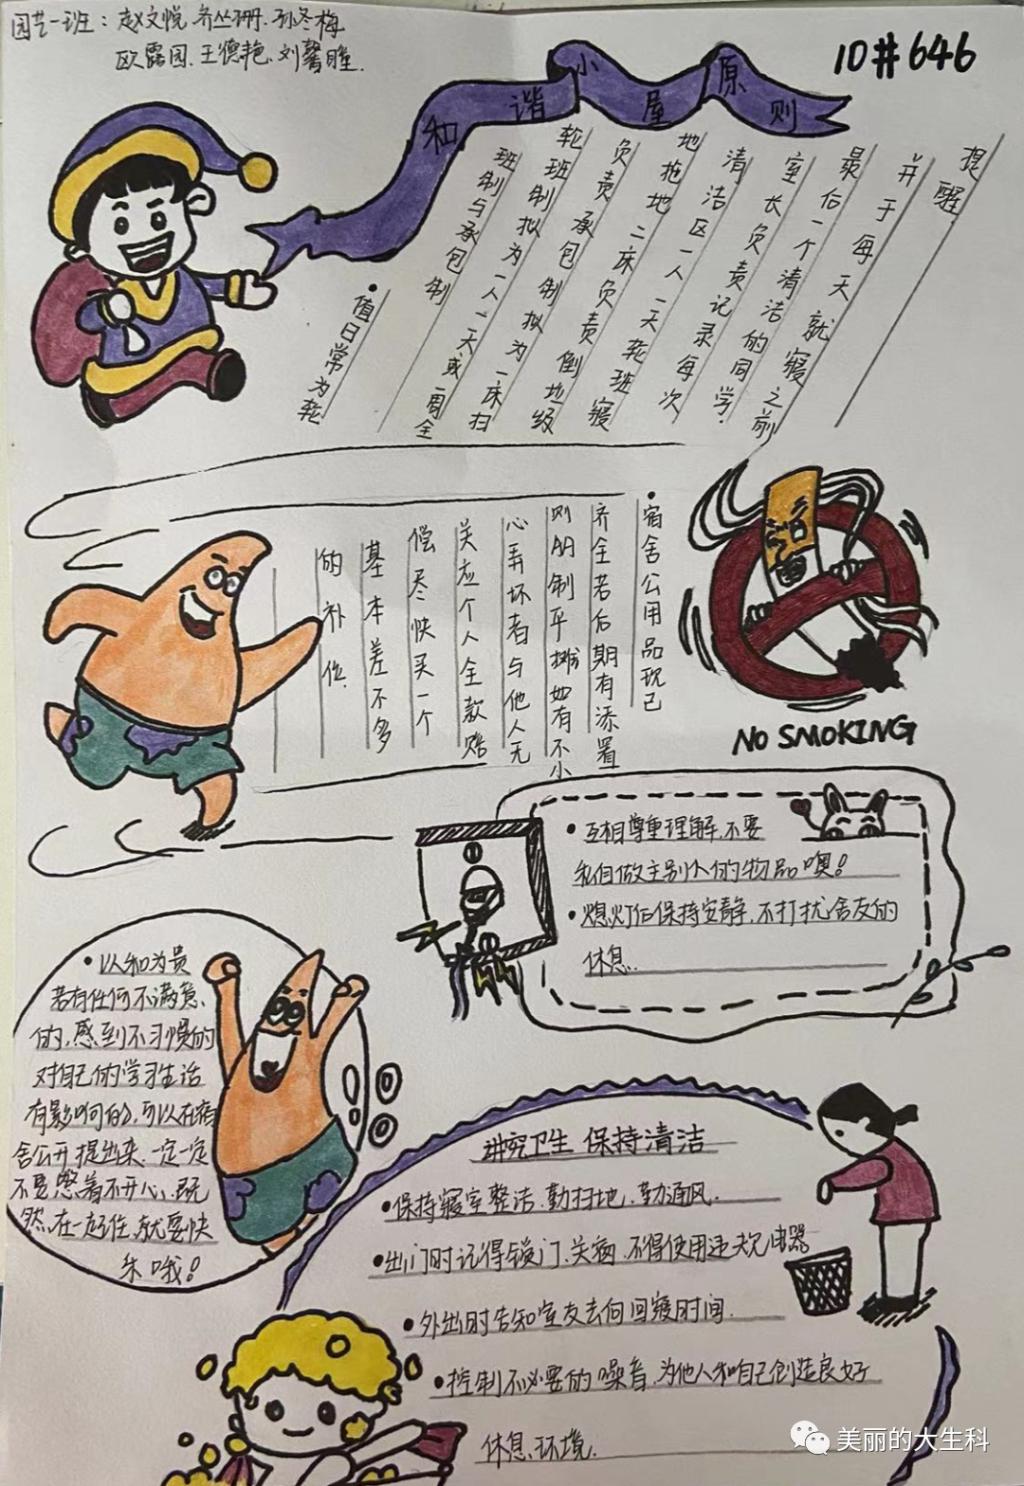 园艺一班：赵文悦.齐丛珊.孙冬梅
欧露园.王德艳.刘馨瞳.
10#646
和谐小屋原则
•值日常为轮
班制与承包制
轮班制拟为一人一天或一周全
负责承包制拟为一床扫
地拖地二床负责倒垃圾
清洁区一人一天轮班寝
室长负责记录每次
最后一个清洁的同学.
并于每天就寝之前
提醒
•宿舍公用品现已
齐全若后期有添置
则AA制平摊如有不小
心弄坏者与他人无
关应个人全款赔
偿尽快买一个
基本差不多
的补位.
NO SMOKING
•互相尊重理解.不要
私自做主别人的物品噢!
•熄灯后保持安静.不打扰舍友的
休息.
•以和为贵
若有任何不满意、
的.感到不习惯的
对自己的学习生活
有影响的.可以在宿
舍公开提出来.一定一定
不要憋着不开心.既
然.在一起住.就要快
乐哦!
讲究卫生 保持清洁
•保持寝室整洁.勤扫地.勤通风.
•出门时记得锁门.关窗.不得使用违规电器
•外出时告知室友去向回寝时间.
•控制不必要的噪音.为他人和自己创造良好
休息环境.
美丽的大生科